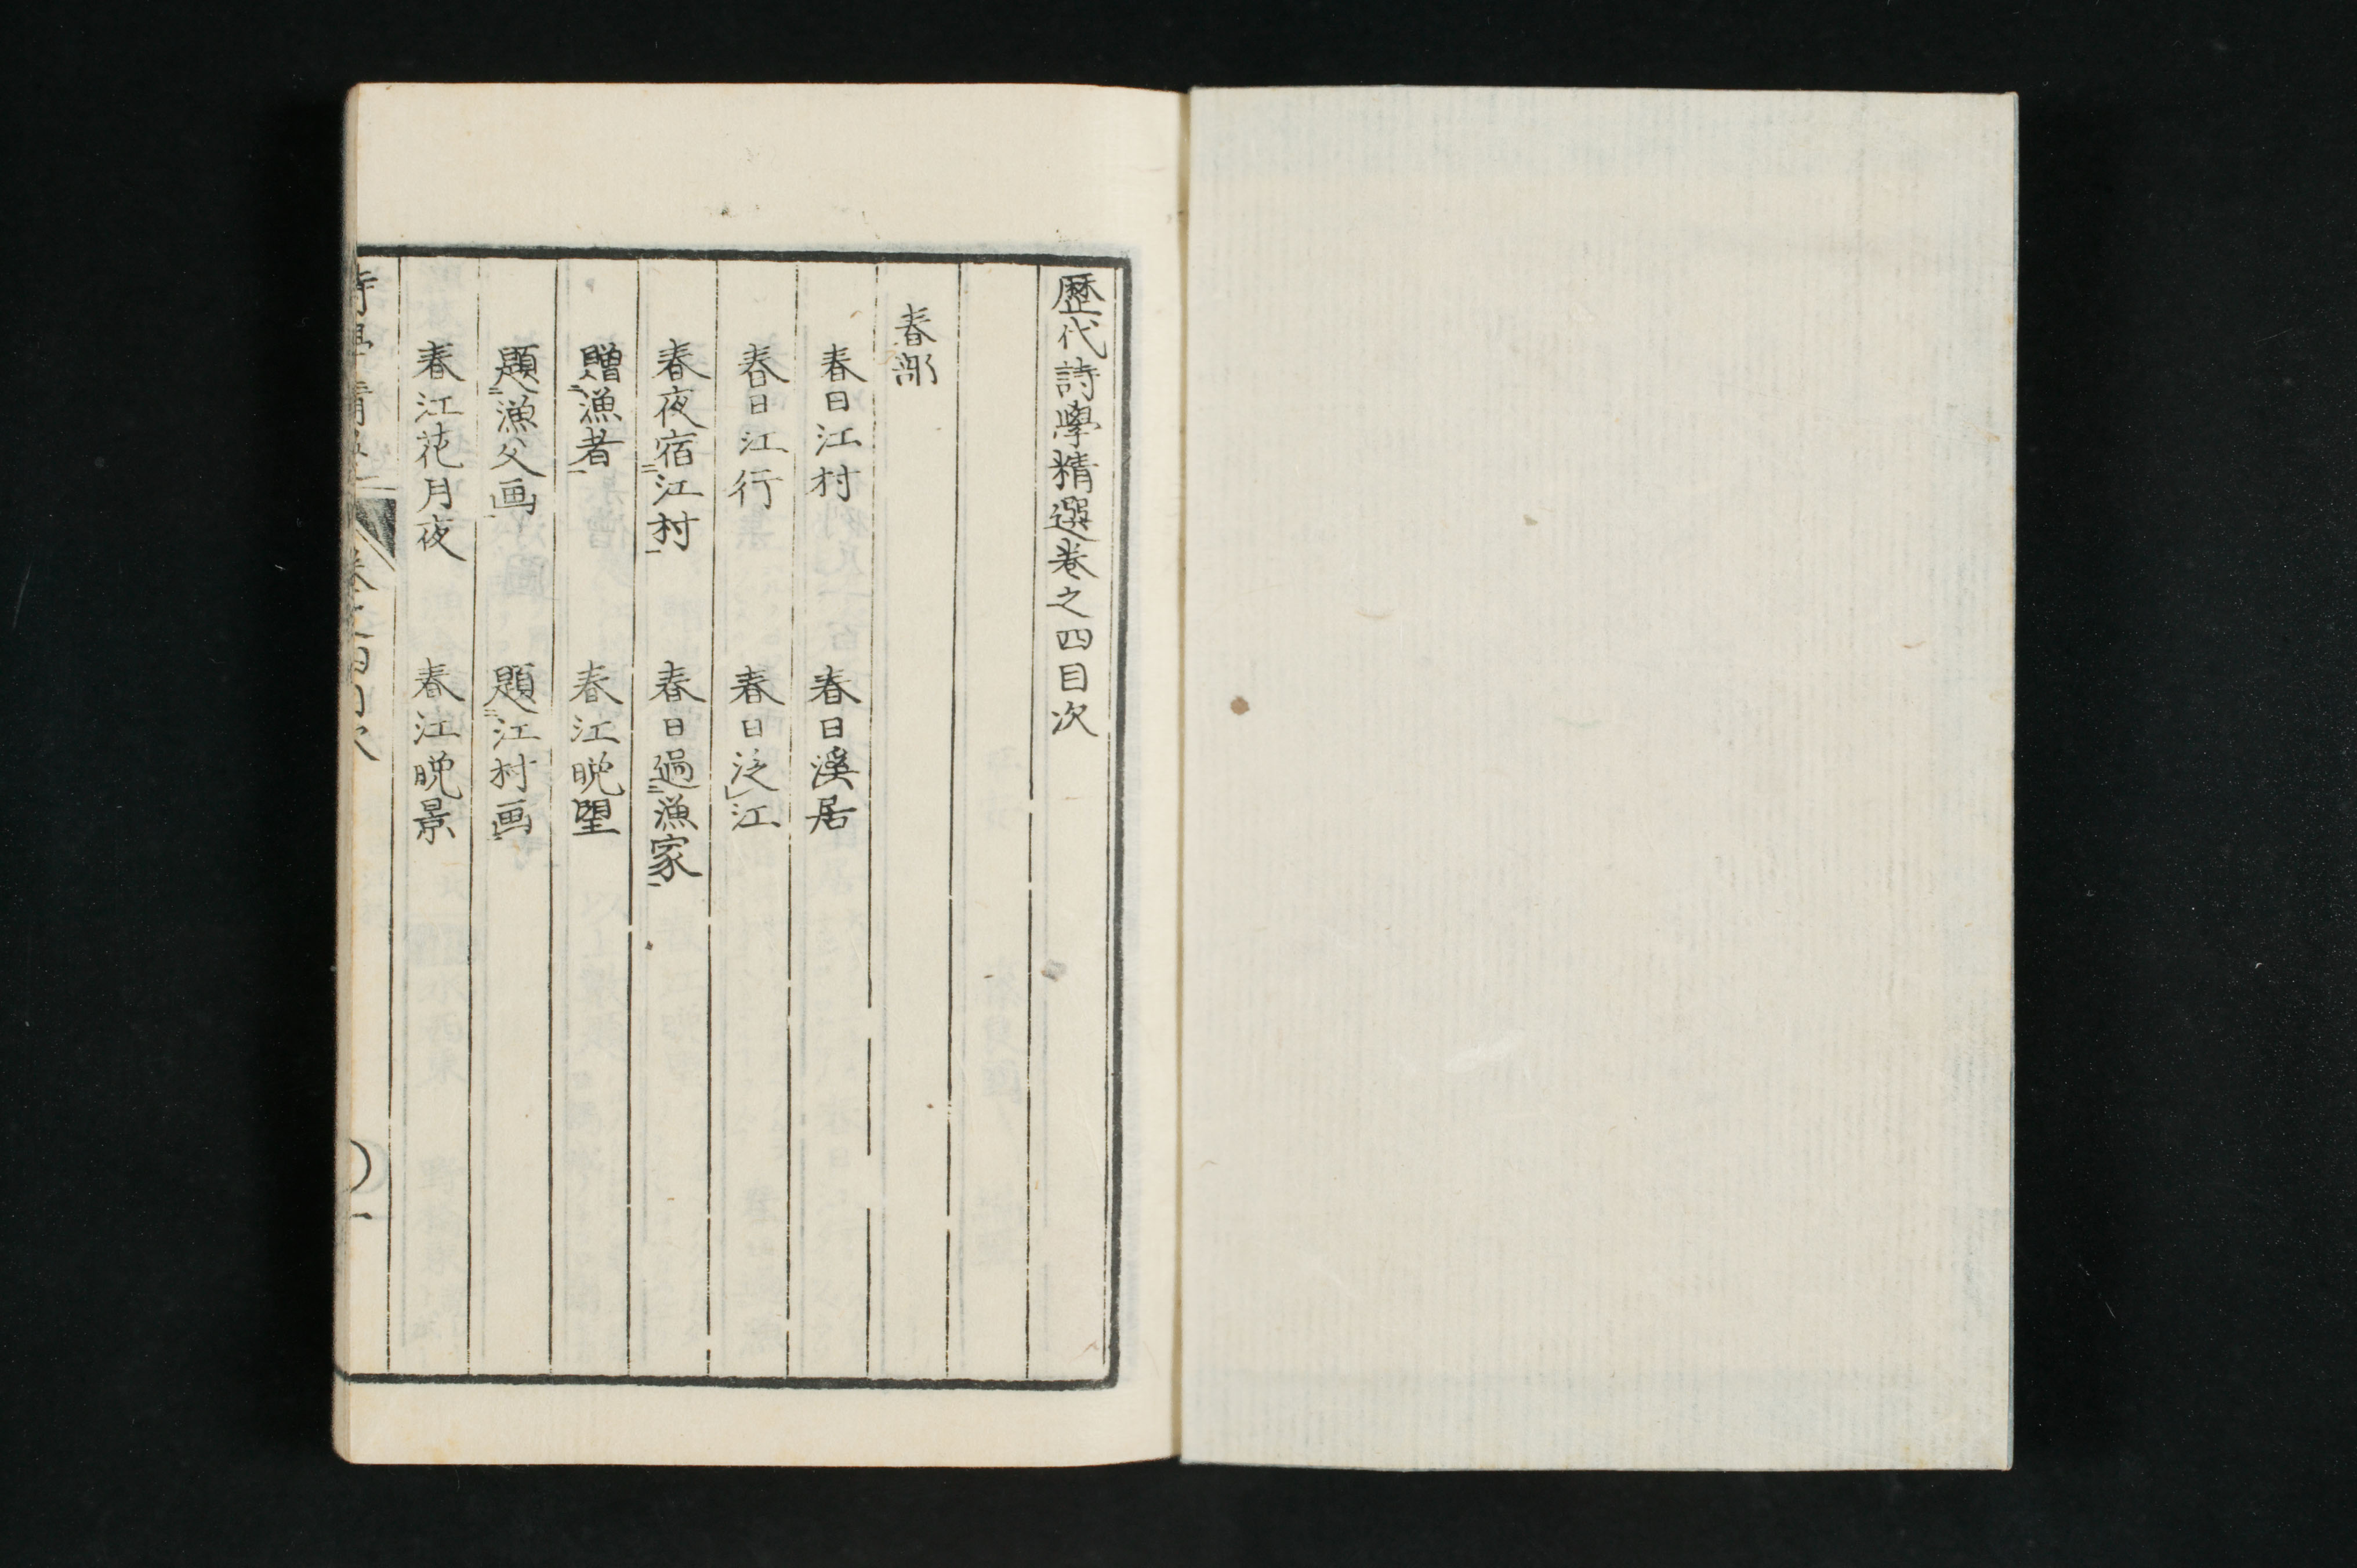 歷代詩學精選卷之四目次
春部
春日江村　春日溪居
春日江行　春日泛江
春夜宿江村　春日過漁家
贈漁者　春江晩望
題漁父画　題江村画
春江花月夜　春江晩景